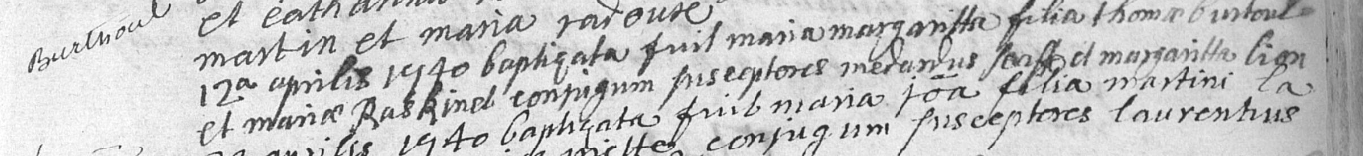 Burthoul
et catharina
martin et maria radoux
12a aprilis 1740 baptizata fuit maria margaritta filia thomæ burtoul
et mariæ Raskinet conjugum susceptores medardus et margaritta lion
aprilis 1740 baptizata fuit maria joa filia martini la
conjugum susceptores laurentius